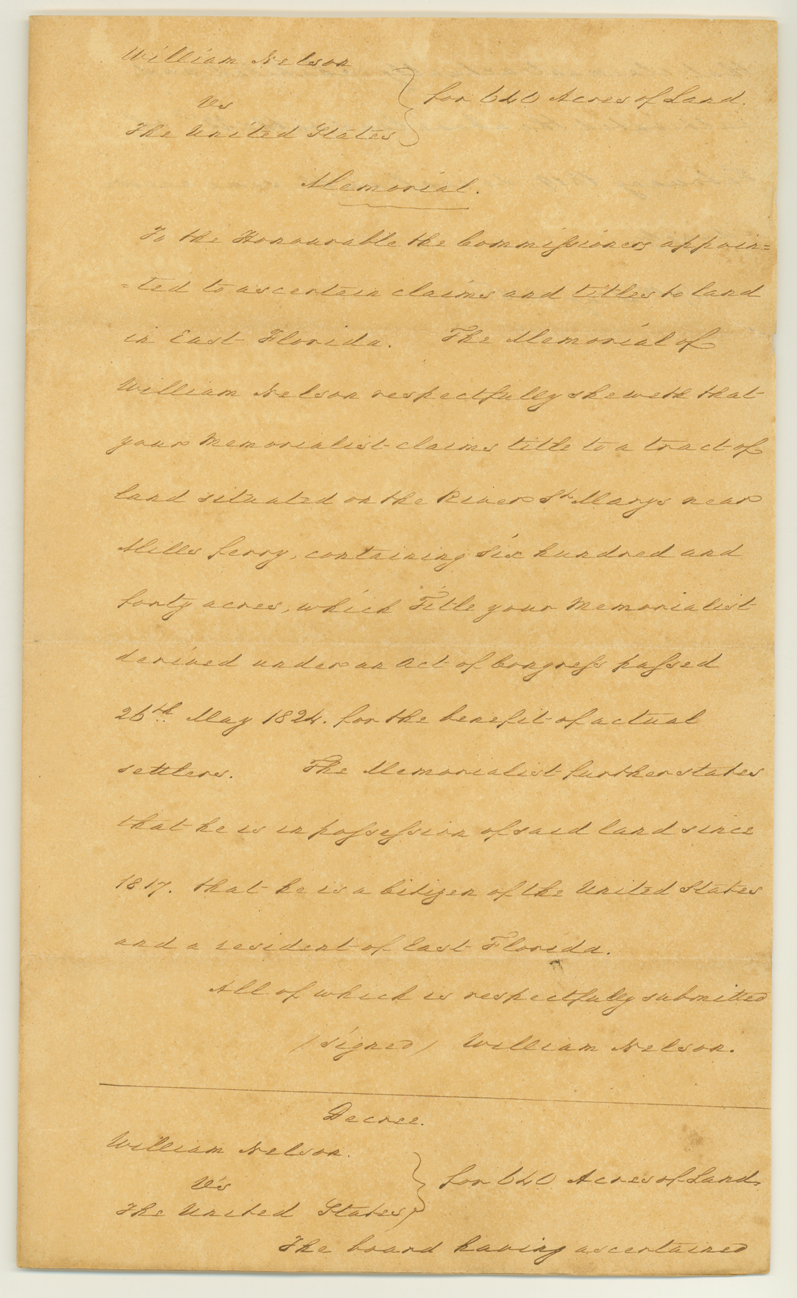 William Nelson
Vs } for 640 Acres of Land.
The United States
Memorial.
To the Honourable the Commissioners appoin=
=ted to ascertain claims and titles to land
in East Florida. The Memorial of
William Nelson respectfully sheweth that
your Memorialist claims title to a tract of
land situated on the River St. Marys near
Mills ferry, containing six hundred and
forty acres, which Title your Memorialist
derived under an Act of Congress passed
26th May 1824. for the benefit of actual
settlers. The Memorialist further states
that he is in possession of said land since
1817. that he is a Citizen of the United States
and a resident of East Florida.
All of which is respectfully submitted
(signed) William Nelson.
Decree.
William Nelson.
Vs } for 640 Acres of Land
The United States
The board having ascertained